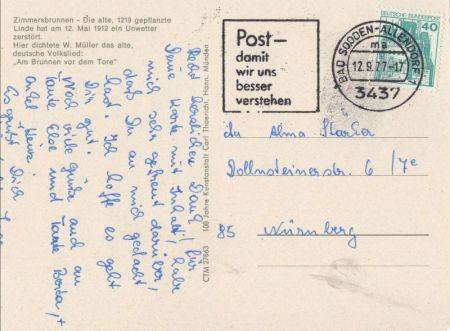 Zimmersbrunnen - Die alte, 1219 gepflanzte
Linde hat am 12. Mai 1912 ein Unwetter
zerstört.
Hier dichtete W. Müller das alte,
deutsche Volkslied:
„Am Brunnen vor dem Tore"
Post–
damit
wir uns
besser
verstehen
BAD SOODEN-ALLENDORF
ma
12.9.77-17
3437
DEUTSCHE BUNDESPOST
40
Herzlichen Dank für
Deine Karte mit Inhalt, habe
mich sehr gefreut darüber,
daß Du an mich gedacht
hast. Ich hoffe es geht
Dir gut.
Noch viele Grüße auch an
Tante Else und Tante
Es grüßt Dich
100 Jahre Kunstanstalt Carl Thoericht, Hann. Münden
CTM 27/663
Alma
Dollnsteinerstr. 6/7e
85 Nürnberg